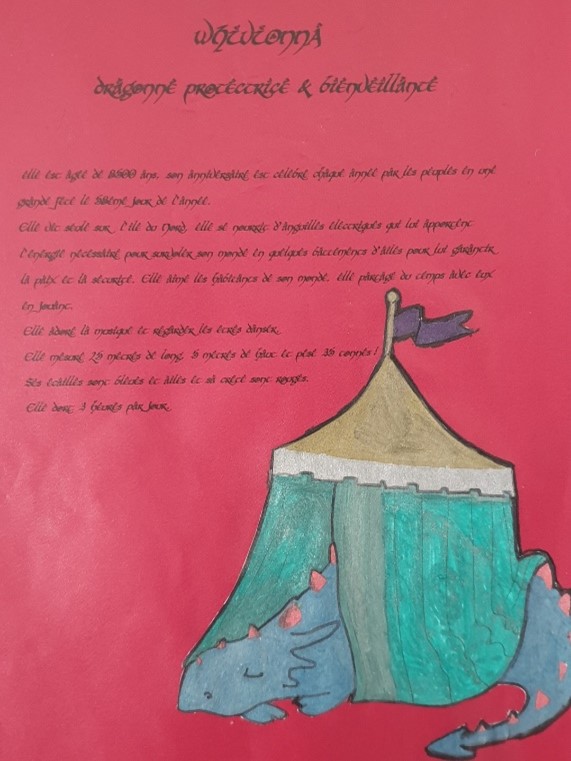 Whivionna
dragonne protectrice & bienveillante
elle est agée de 8500 ans, son anniversaire est célébré chaque année par les peuples en une
grande fête le jour de l'année.
Elle vit seule sur l'île du Nord, elle se nourrit d'anguilles électriques qui lui apportent
l'énergie nécessaire pour survoler son monde en quelques battements d'ailes pour lui garantir
la paix et la sécurité. Elle aime les habitants de son monde, elle partage du temps avec eux
en jouant.
Elle adore la musique et regarder les êtres danser.
Elle mesure 25 mètres de long, 5 mètres de haut et pèse 35 tonnes !
Ses écailles sont bleues et ailes et sa crête sont rouges.
Elle dort 3 heures par jour.